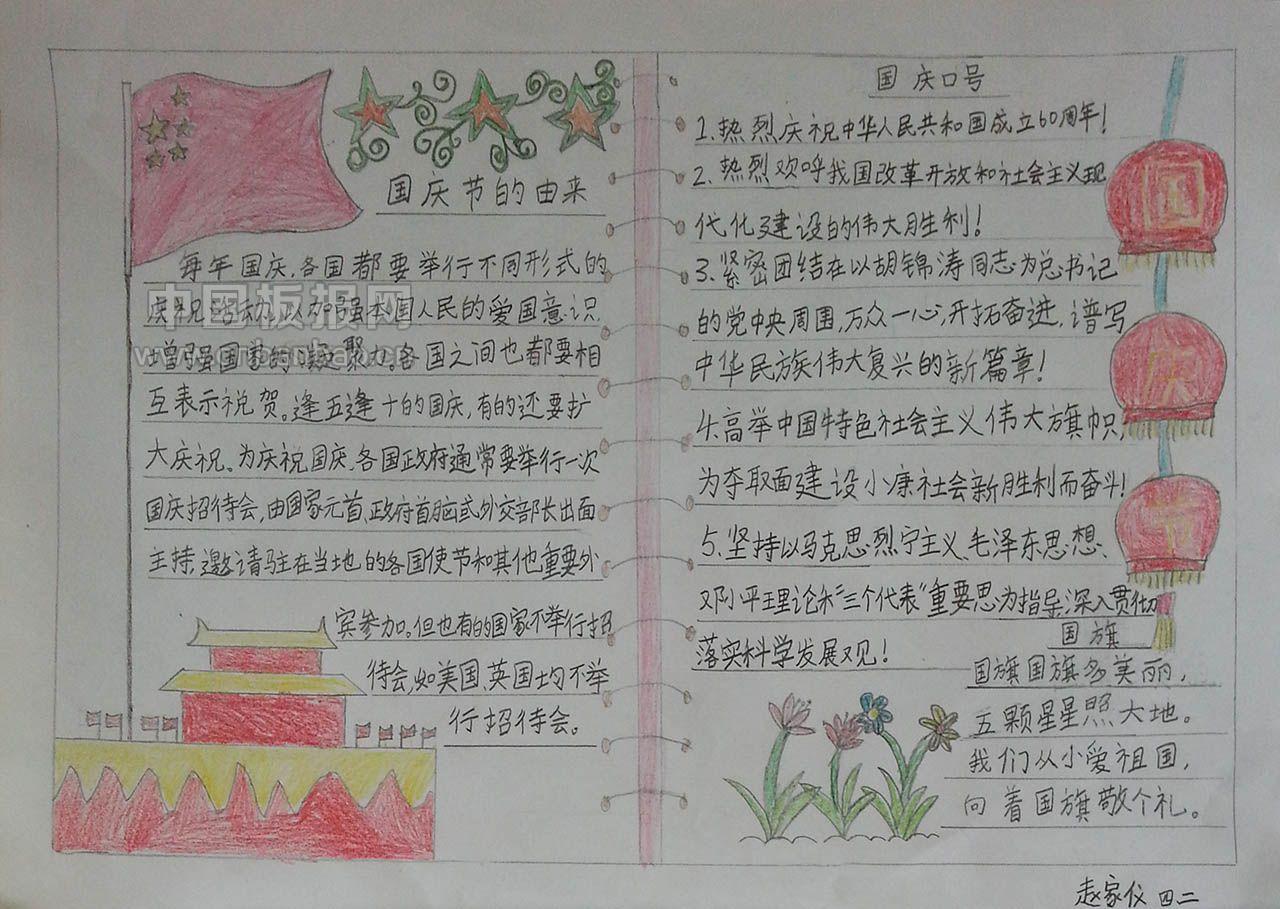 国庆节的由来
每年国庆,各国都要举行不同形式的
庆祝活动,以加强本国人民的爱国意识,
增强国家的凝聚力。各国之间也都要相
互表示祝贺。逢五逢十的国庆,有的还要扩
大庆祝。为庆祝国庆,各国政府通常要举行一次
国庆招待会,由国家元首、政府首脑或外交部长出面
主持,邀请驻在当地的各国使节和其他重要外
宾参加。但也有的国家不举行招
待会,如美国、英国均不举
行招待会。
国庆口号
1.热烈庆祝中华人民共和国成立60周年!
2.热烈欢呼我国改革开放和社会主义现
代化建设的伟大胜利!
3.紧密团结在以胡锦涛同志为总书记
的党中央周围,万众一心,开拓奋进,谱写
中华民族伟大复兴的新篇章!
4.高举中国特色社会主义伟大旗帜,
为夺取面建设小康社会新胜利而奋斗!
5.坚持以马克思烈宁主义、毛泽东思想、
邓小平理论和“三个代表”重要思为指导,深入贯彻
落实科学发展观!
国
庆
节
国旗
国旗国旗多美丽,
五颗星星照大地。
我们从小爱祖国,
向着国旗敬个礼。
赵家仪 四二
中国板报网